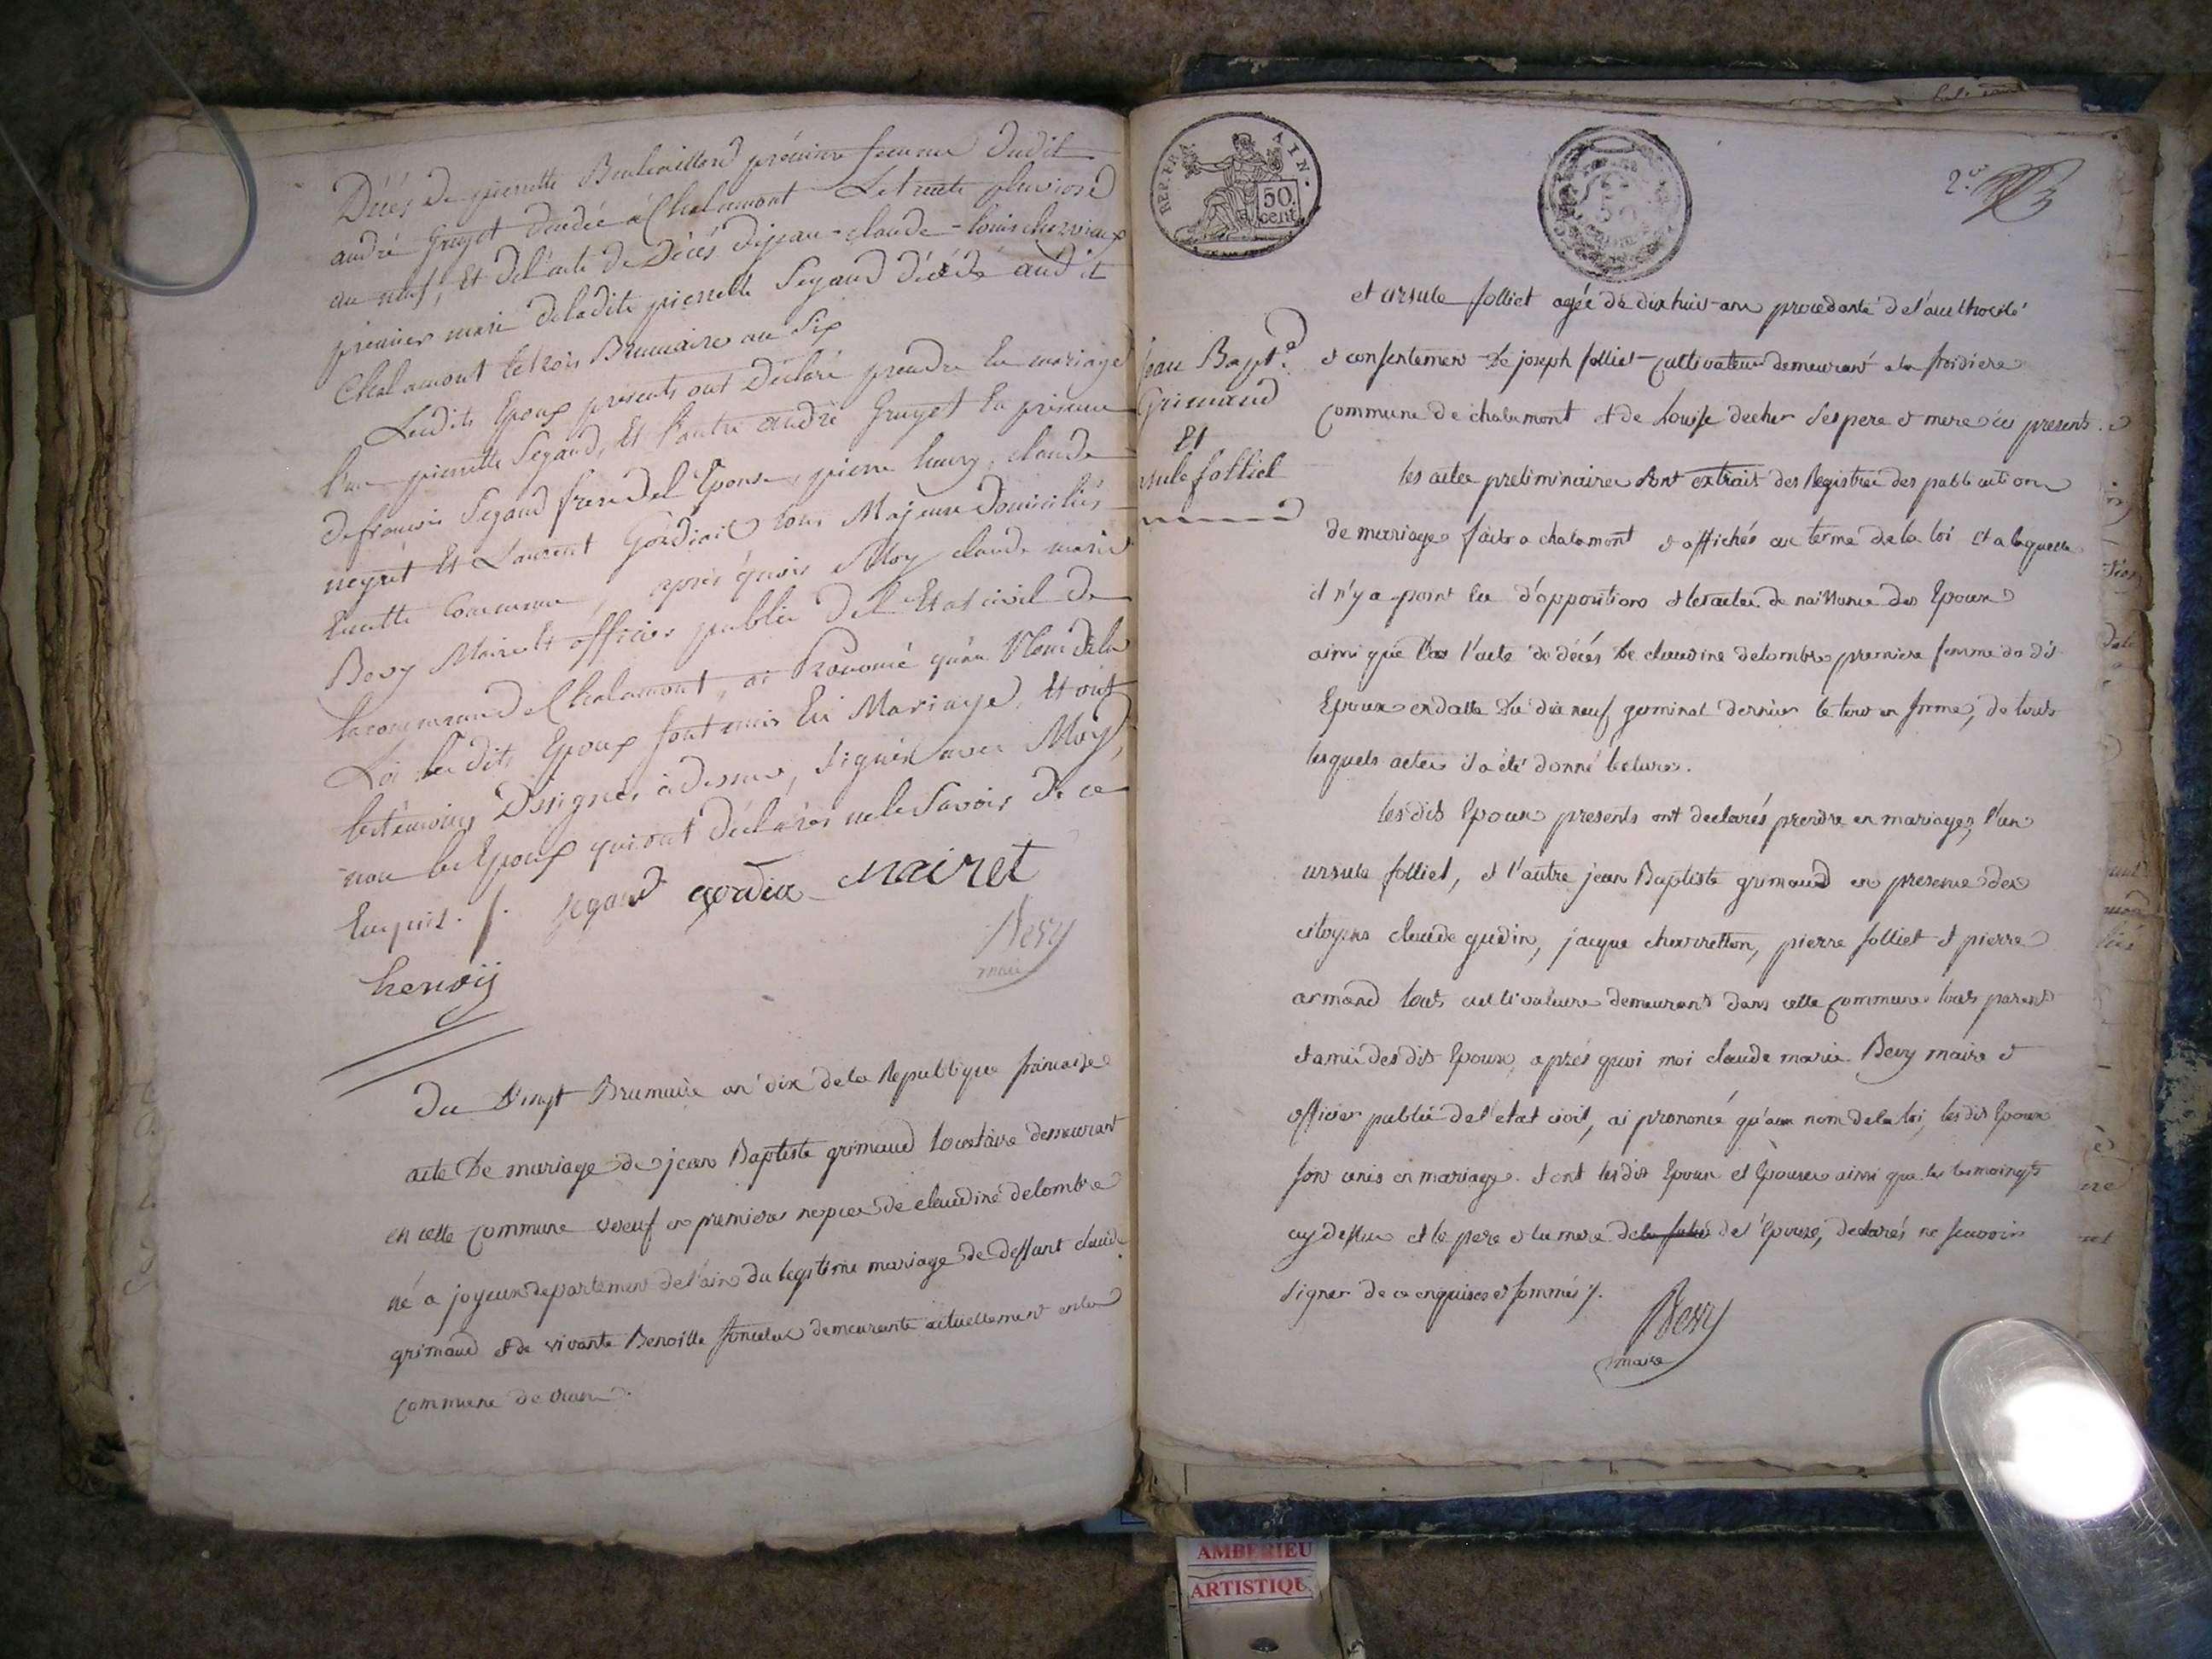 Décés de pierrette premiere femme dudit
andré Gruyet décédée à Chalamont Le trente pluviose
an neuf, Et de l'acte de Décés de jean-claude-louis
premier mari de ladite pierrette Segaud décédé audit
Chalamont le trois Brumaire an Six
Lesdits Epoux présents ont Déclaré prendre En mariage
l'un pierrette Segaud, Et l'autre andré Gruyet En présence
de francois Segaud frere de l'Epouse, pierre henry, claude
Et Laurent tous Majeurs Domiciliés
En cette Commune, après quoi Moy claude marie
Bevy Maire Et officier public de l'Etat civil de
la commune de Chalamont, ai Prononcé qu'au Nom de la
Loi lesdits Epoux sont unis En Mariage, Et ont
les témoins Désignés ci dessus, signés avec Moy,
non les Epoux qui ont déclarés ne le Savoir de ce
Enquis ./. segaud gordia Mairet
henrÿ Bevy
maire
Du Vingt Brumaire an dix de la Republique francaise
acte De mariage de jean Baptiste grimaud locataire demeurant
en cette commune veuf en premieres nopces de claudine delombre
né a joyeux departement de l'ain du legitime mariage de deffunt claude
grimaud et de vivante Benoitte demeurante actuellement en la
commune de
REP. FRA. AIN.
50.
cent.
2.
Jean Bapt.e
Grimaud
Et
rsule folliet
et ursule folliet agée de dix huit ans procedante de l'authorité
et consentement De joseph folliet cultivateur demeurant a la froidiere
commune de chalamont et de Louise decher ses pere et mere ici presents.
les actes preliminaires sont extrait des Registres des publications
de mariage faite a chalamont et affichés au terme de la loi Et a laquelle
il n'y a point Eu d'oppositions et les actes de naissance des Epoux
ainsi que l'acte de décés De claudine delombre premiere femme du dit
Epoux en datte Du dix neuf germinal dernier le tout en forme, de touts
lesquels actes il a été donné lecture.
les dits Epoux presents ont declarés prendre en mariages, l'un
ursule folliet, et l'autre jean Baptiste grimaud en presence des
citoyens claude gudin, jacque charretton, pierre folliet et pierre
armand touts cultivateurs demeurants dans cette commune touts parents
et amis des dits Epoux, après quoi moi claude marie Bevy maire et
officier public de l'etat civil, ai prononcé qu'au nom de la loi, les dits Epoux
sont unis en mariage. et ont les dits Epoux et Epouse ainsi que les temoings
cy dessus et le pere et la mere de la future de l'Epouse, declarés ne scavoir
signer de ce enquises et sommés ./.
Bevy
maire
AMBERIEU
ARTISTIQU